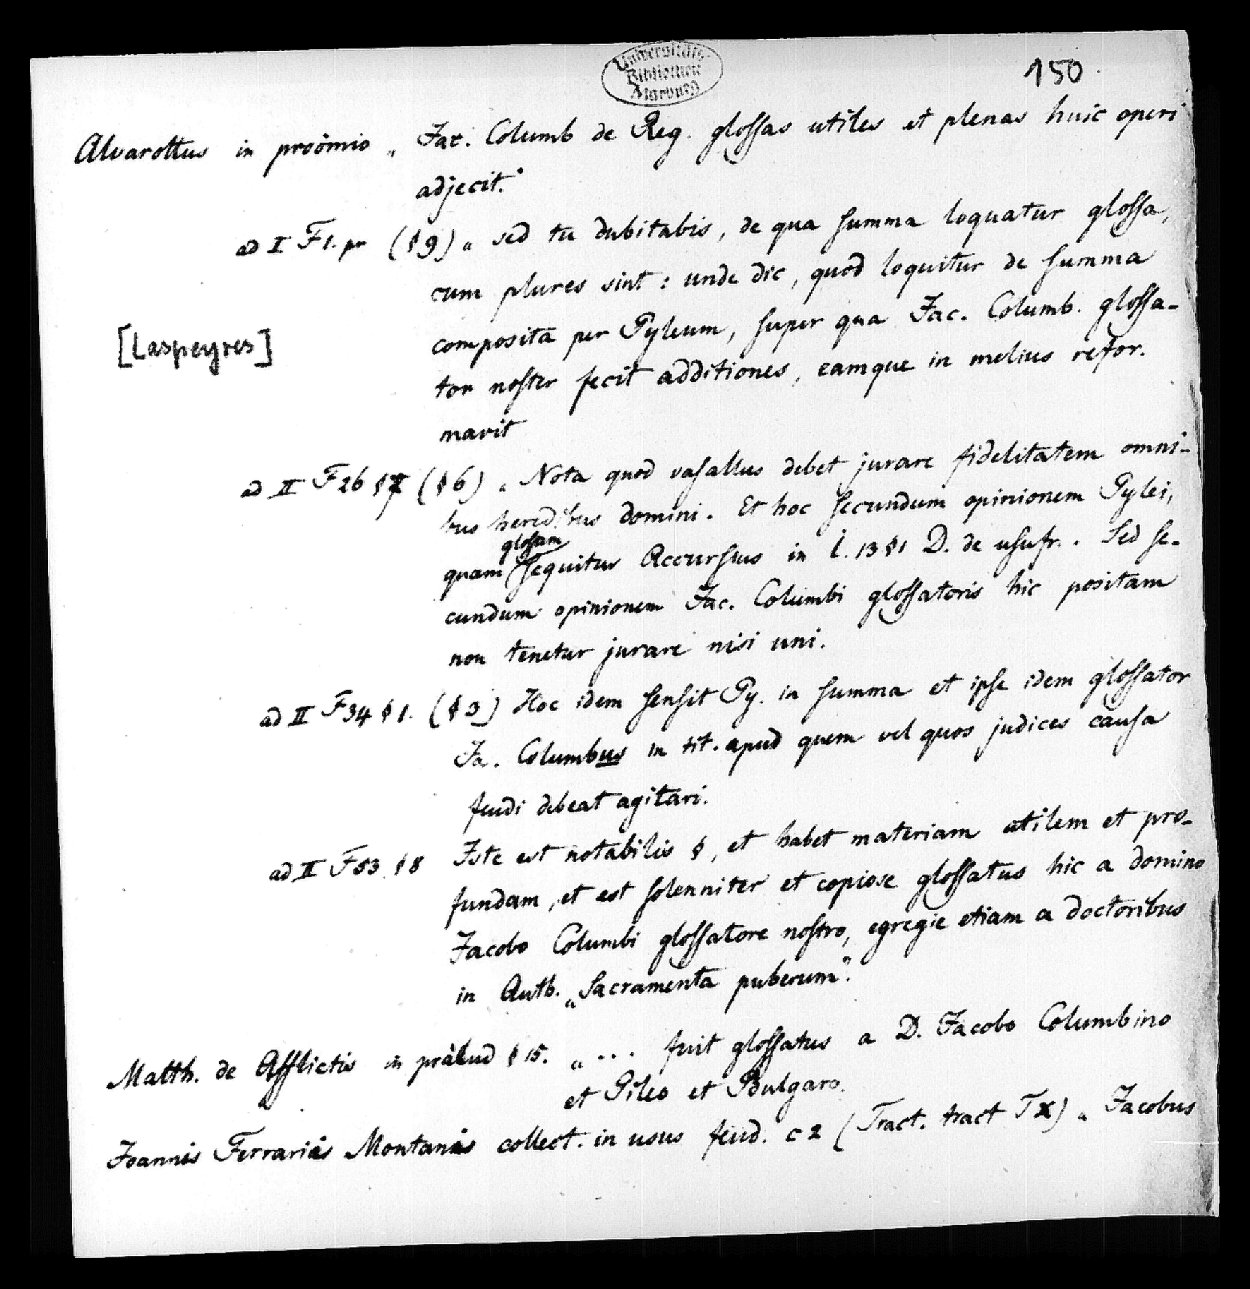 Universitäts-
Bibliothek
Marburg
150
Alvarottus in proömio „ Jac. Columb de Reg. glossas utiles et plenas huic operi
adjecit."
ad I F 1. pr (§ 9) „ sed tu dubitabis, de qua summa loquatur glossa,
cum plures sint : unde dic, quod loquitur de summa
[Laspeyres]
composita per Pyleum, super qua Jac. Columb. glossa-
tor noster fecit additiones, eamque in melius refor-
mavit
ad II F 26 § 7 (§ 6) „ Nota quod vasallus debet jurare fidelitatem omni-
bus heredibus domini. Et hoc secundum opinionem Pylei,
glosam
quam sequitur Accursius in l. 13 § 1 D. de usufr. . Sed se-
cundum opinionem Jac. Columbi glossatoris hic positam
non tenetur jurare nisi uni.
ad II F 34 § 1. (§ 3) Hoc idem sensit Py. in summa et ipse idem glossator
Ja. Columbus in tit. apud quem vel quos judices causa
feudi debeat agitari.
ad II F 53 § 8 Iste est notabilis §, et habet materiam utilem et pro-
fundam, et est solenniter et copiose glossatus hic a domino
Jacobo Columbi glossatore nostro, egregie etiam a doctoribus
in Auth. „Sacramenta puberum".
Matth. de Afflictis in prälud § 15. „ ... fuit glossatus a D. Jacobo Columbino
et Pileo et Bulgaro.
Joannis Ferrariis Montanis collect. in usus feud. c 2 (Tract. tract T X) „ Jacobus